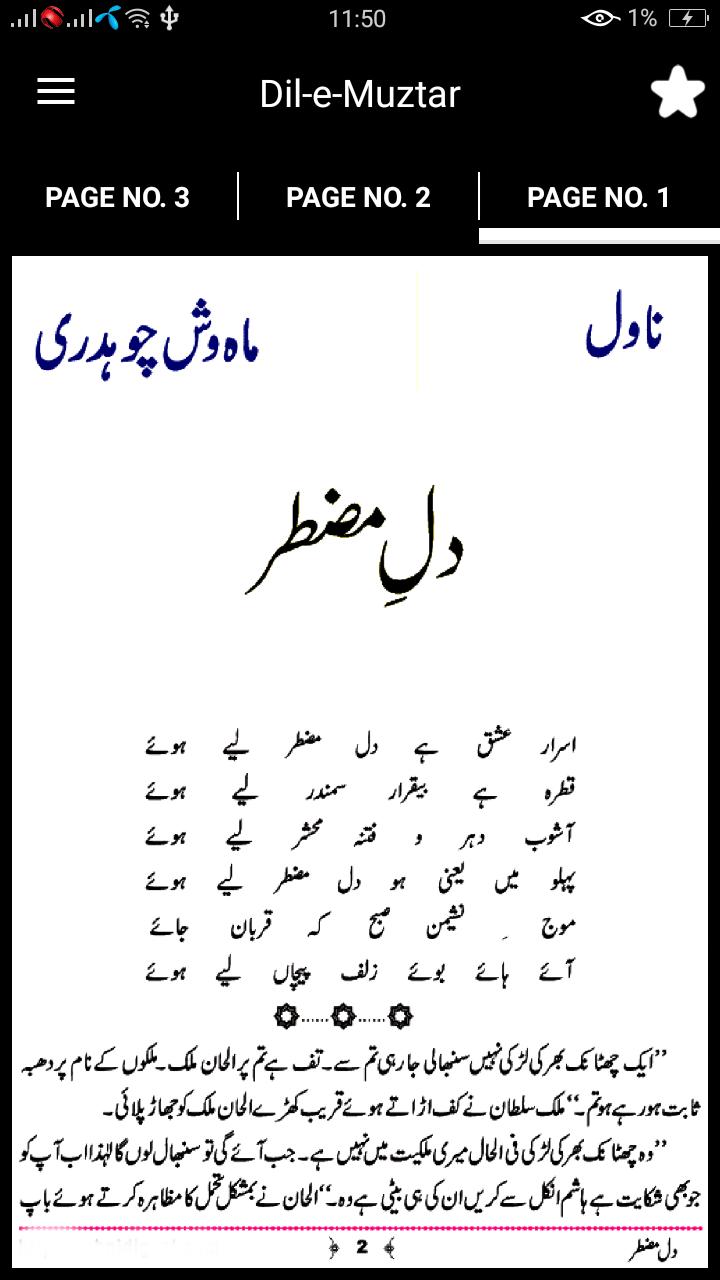 11:50
1%
Dil-e-Muztar
PAGE NO. 3 PAGE NO. 2 PAGE NO. 1
ناول
ماہ وش چوہدری
دلِ مضطر
اسرار عشق ہے دل مضطر لیے ہوئے
قطرہ ہے بیقرار سمندر لیے ہوئے
آشوب دہر و فتنہ محشر لیے ہوئے
پہلو میں یعنی ہو دل مضطر لیے ہوئے
موج ِ نشیمن صبح کہ قربان جائے
آئے ہائے بوئے زلف پیچاں لیے ہوئے
’’ایک چھٹانک بھر کی لڑکی نہیں سنبھالی جا رہی تم سے۔ تف ہے تم پر الحان ملک۔ ملکوں کے نام پر دھبہ
ثابت ہو رہے ہو تم۔‘‘ ملک سلطان نے کف اڑاتے ہوئے قریب کھڑے الحان ملک کو جھاڑ پلائی۔
’’وہ چھٹانک بھر کی لڑکی فی الحال میری ملکیت میں نہیں ہے۔ جب آئے گی تو سنبھال لوں گا لہٰذا اب آپ کو
جو بھی شکایت ہے ہاشم انکل سے کریں ان کی ہی بیٹی ہے وہ۔‘‘ الحان نے بمشکل تحمل کا مظاہرہ کرتے ہوئے باپ
دل مضطر ﴿ 2 ﴾